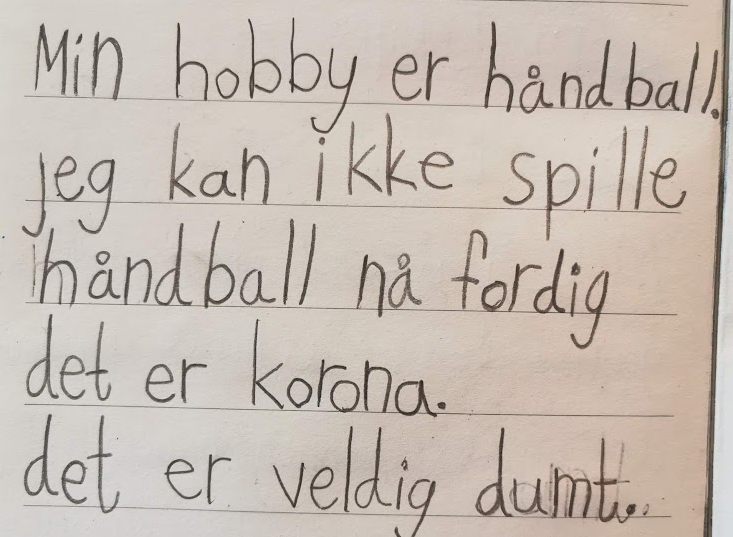 Min hobby er håndball.
jeg kan ikke spille
håndball nå fordig
det er korona.
det er veldig dumt.